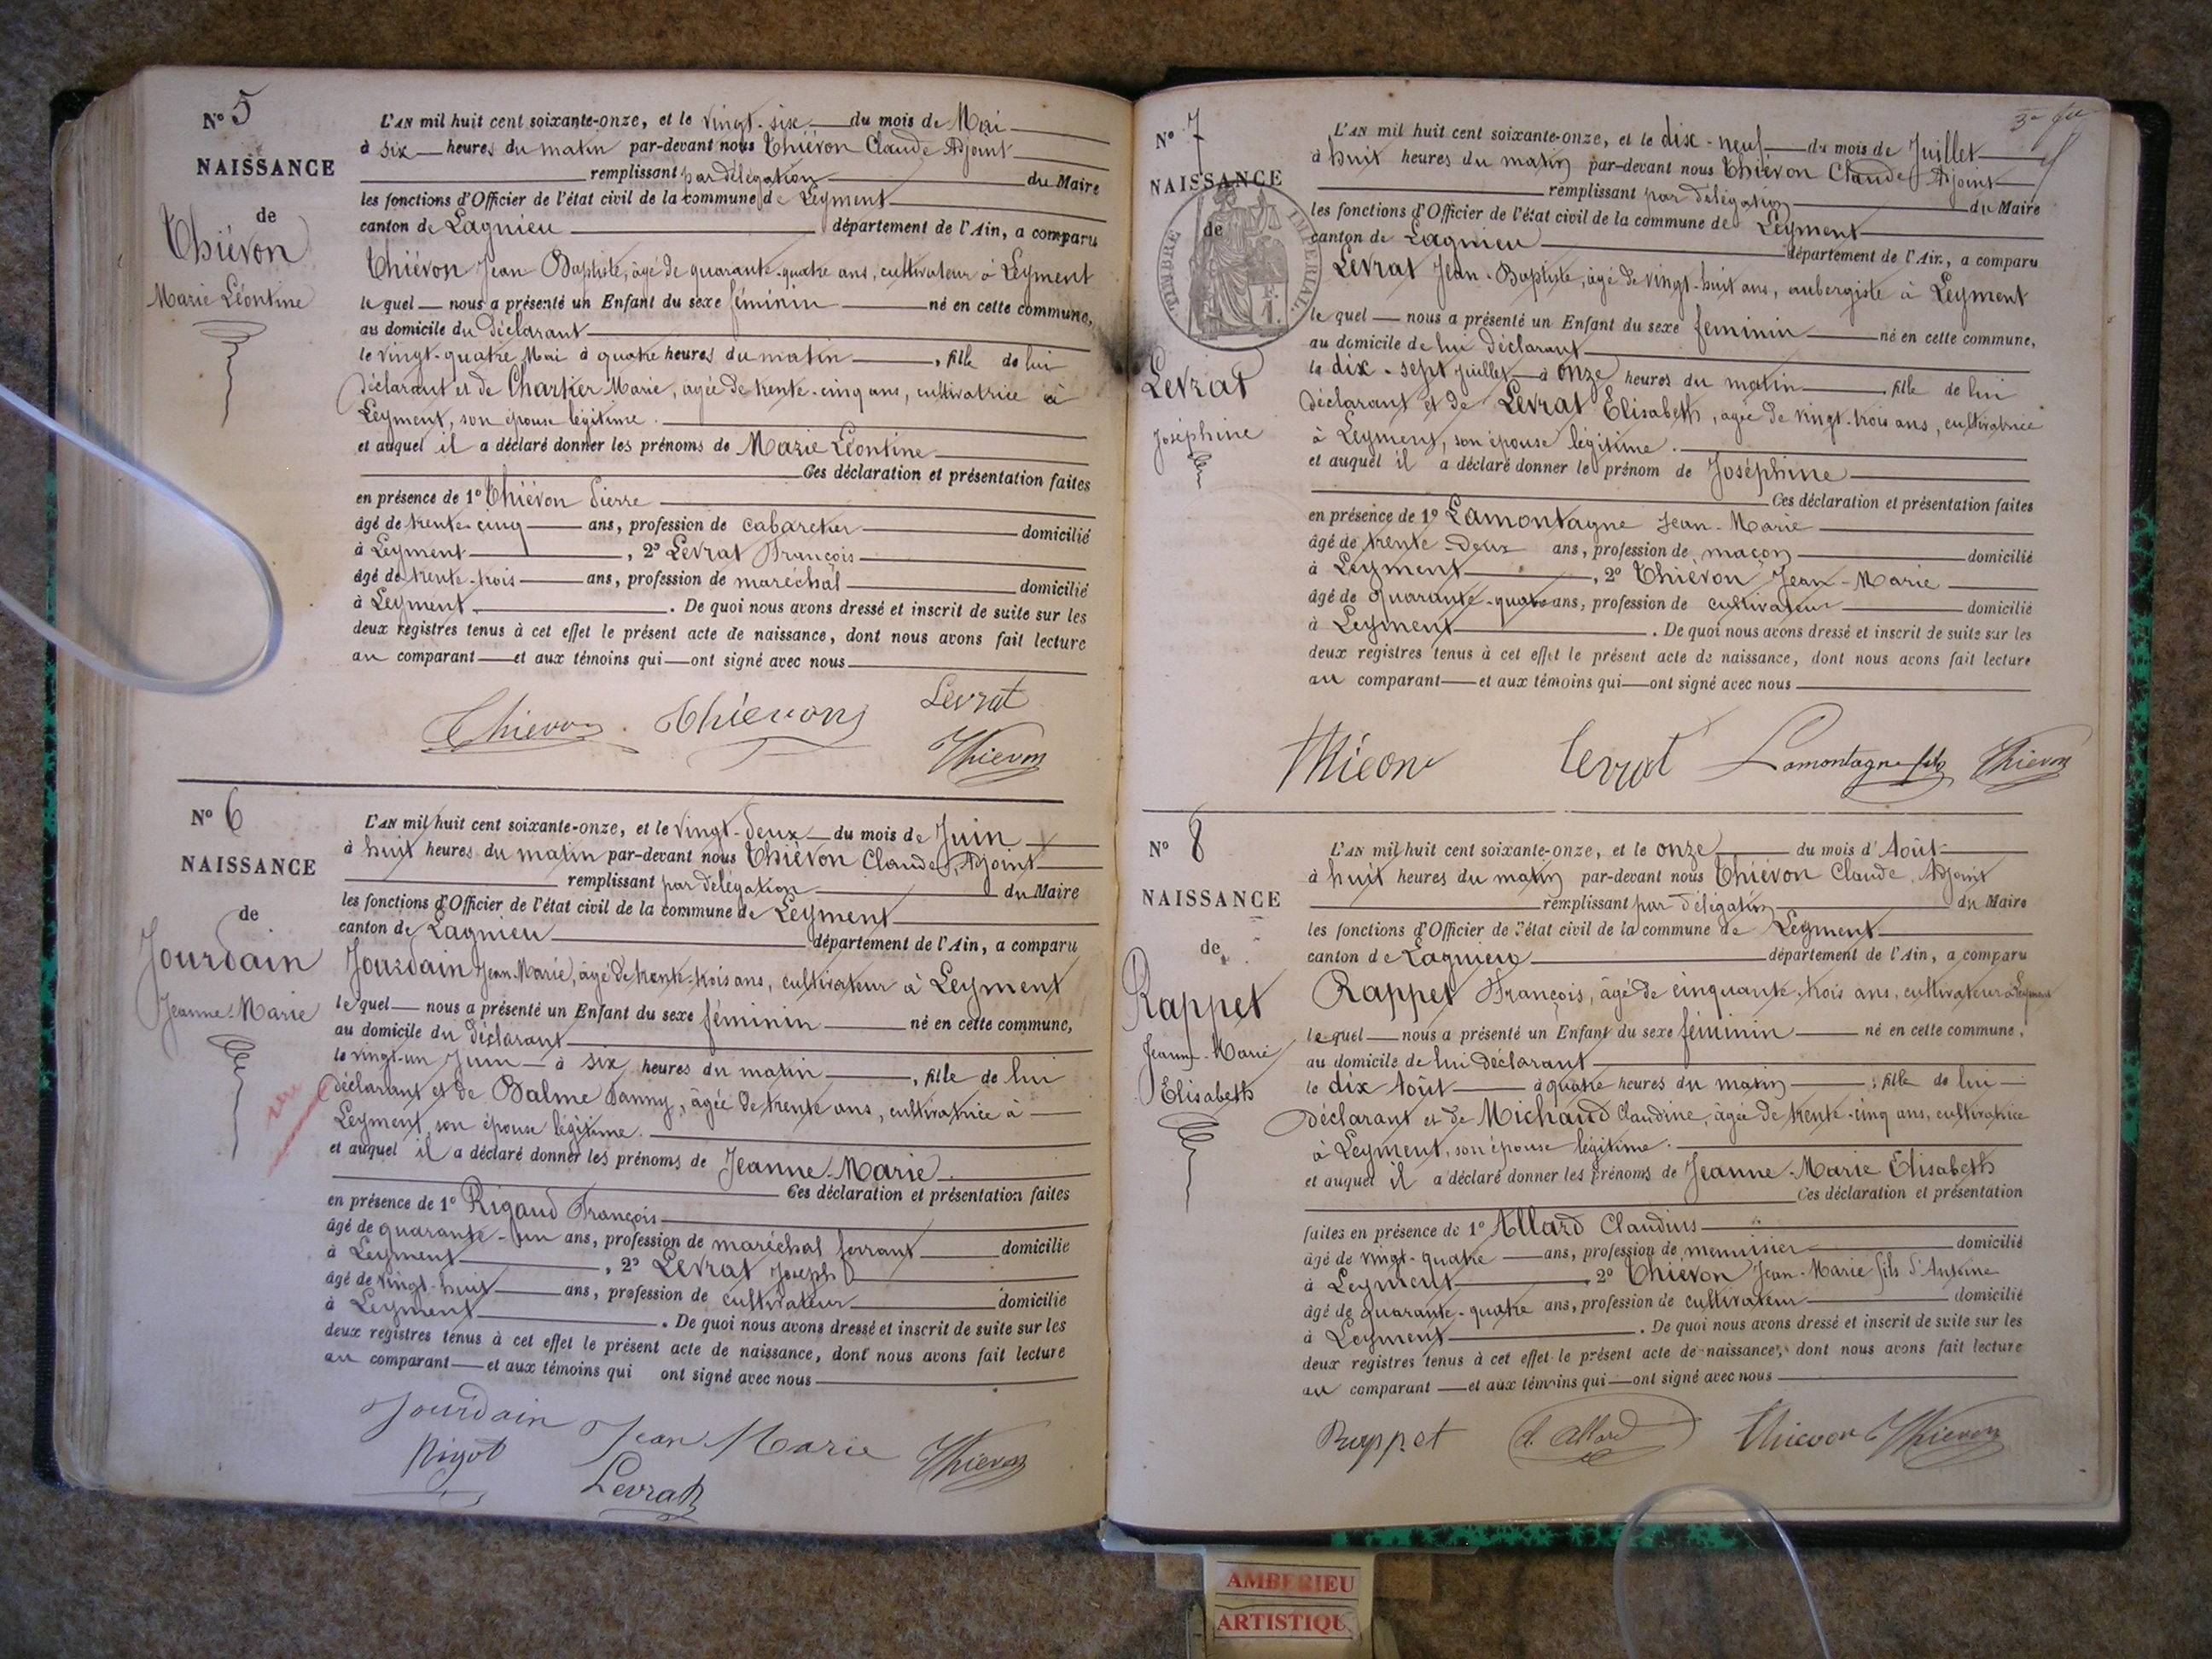 N° 5
NAISSANCE
de
Thiévon
Marie Léontine
L'AN mil huit cent soixante-onze, et le vingt-six du mois de Mai
à six heures du matin par-devant nous Thiévon Claude Adjoint
remplissant par délégation du Maire
les fonctions d'Officier de l'état civil de la commune de Leyment
canton de Lagnieu département de l'Ain, a comparu
Thiévon Jean Baptiste, âgé de quarante-quatre ans, cultivateur à Leyment
le quel nous a présenté un Enfant du sexe féminin né en cette commune,
au domicile du déclarant
le vingt-quatre Mai à quatre heures du matin, fille de lui
déclarant et de Charker Marie, âgée de trente-cinq ans, cultivatrice à
Leyment, son épouse légitime.
et auquel il a déclaré donner les prénoms de Marie Léontine
Ces déclaration et présentation faites
en présence de 1° Thiévon Pierre
âgé de trente-cinq ans, profession de cabaretier domicilié
à Leyment, 2° Levrat François
âgé de trente-trois ans, profession de maréchal domicilié
à Leyment. De quoi nous avons dressé et inscrit de suite sur les
deux registres tenus à cet effet le présent acte de naissance, dont nous avons fait lecture
au comparant et aux témoins qui ont signé avec nous
Thievon Thiévon Levrat
Thievon
N° 6
NAISSANCE
de
Jourdain
Jeanne-Marie
L'AN mil huit cent soixante-onze, et le vingt-deux du mois de Juin
à huit heures du matin par-devant nous Thiévon Claude, Adjoint
remplissant par délégation du Maire
les fonctions d'Officier de l'état civil de la commune de Leyment
canton de Lagnieu département de l'Ain, a comparu
Jourdain Jean-Marie, âgé de trente-trois ans, cultivateur à Leyment
le quel nous a présenté un Enfant du sexe féminin né en cette commune,
au domicile du déclarant
le vingt-un Juin à six heures du matin, fille de lui
déclarant et de Balme Fanny, âgée de trente ans, cultivatrice à
Leyment, son épouse légitime.
et auquel il a déclaré donner les prénoms de Jeanne-Marie
Ces déclaration et présentation faites
en présence de 1° Rigaud François
âgé de quarante-un ans, profession de maréchal ferrant domicilié
à Leyment, 2° Levrat Joseph
âgé de vingt-huit ans, profession de cultivateur domicilié
à Leyment. De quoi nous avons dressé et inscrit de suite sur les
deux registres tenus à cet effet le présent acte de naissance, dont nous avons fait lecture
au comparant et aux témoins qui ont signé avec nous
Jourdain Jean Marie Thievon
Rigot Levrat
N° 7
NAISSANCE
de
TIMBRE IMPÉRIAL
Levrat
Joséphine
L'AN mil huit cent soixante-onze, et le dix-neuf du mois de Juillet
à huit heures du matin par-devant nous Thiévon Claude Adjoint
remplissant par délégation du Maire
les fonctions d'Officier de l'état civil de la commune de Leyment
canton de Lagnieu département de l'Ain, a comparu
Levrat Jean-Baptiste, âgé de vingt-huit ans, aubergiste à Leyment
le quel nous a présenté un Enfant du sexe féminin né en cette commune,
au domicile de lui déclarant
le dix-sept Juillet à onze heures du matin fille de lui
déclarant et de Levrat Elisabeth, âgée de vingt-trois ans, cultivatrice
à Leyment, son épouse légitime.
et auquel il a déclaré donner le prénom de Joséphine
Ces déclaration et présentation faites
en présence de 1° Lamontagne Jean-Marie
âgé de trente-deux ans, profession de maçon domicilié
à Leyment, 2° Thiévon Jean-Marie
âgé de quarante-quatre ans, profession de cultivateur domicilié
à Leyment. De quoi nous avons dressé et inscrit de suite sur les
deux registres tenus à cet effet le présent acte de naissance, dont nous avons fait lecture
au comparant et aux témoins qui ont signé avec nous
Thieon Levrat Lamontagne fils Thievon
N° 8
NAISSANCE
de
Rappet
Jeanne-Marie
Elisabeth
L'AN mil huit cent soixante-onze, et le onze du mois d'Août
à huit heures du matin par-devant nous Thiévon Claude, Adjoint
remplissant par délégation du Maire
les fonctions d'Officier de l'état civil de la commune de Leyment
canton de Lagnieu département de l'Ain, a comparu
Rappet François, âgé de cinquante-trois ans, cultivateur à Leyment
le quel nous a présenté un Enfant du sexe féminin né en cette commune,
au domicile de lui déclarant
le dix Août à quatre heures du matin, fille de lui
déclarant et de Michaud Claudine, âgée de trente-cinq ans, cultivatrice
à Leyment, son épouse légitime.
et auquel il a déclaré donner les prénoms de Jeanne-Marie Elisabeth
Ces déclaration et présentation
faites en présence de 1° Allard Claudius
âgé de vingt-quatre ans, profession de menuisier domicilié
à Leyment, 2° Thiévon Jean-Marie fils d'Antoine
âgé de quarante-quatre ans, profession de cultivateur domicilié
à Leyment. De quoi nous avons dressé et inscrit de suite sur les
deux registres tenus à cet effet le présent acte de naissance, dont nous avons fait lecture
au comparant et aux témoins qui ont signé avec nous
Rappet Allard Thievon Thievon
AMBERIEU
ARTISTIQUE